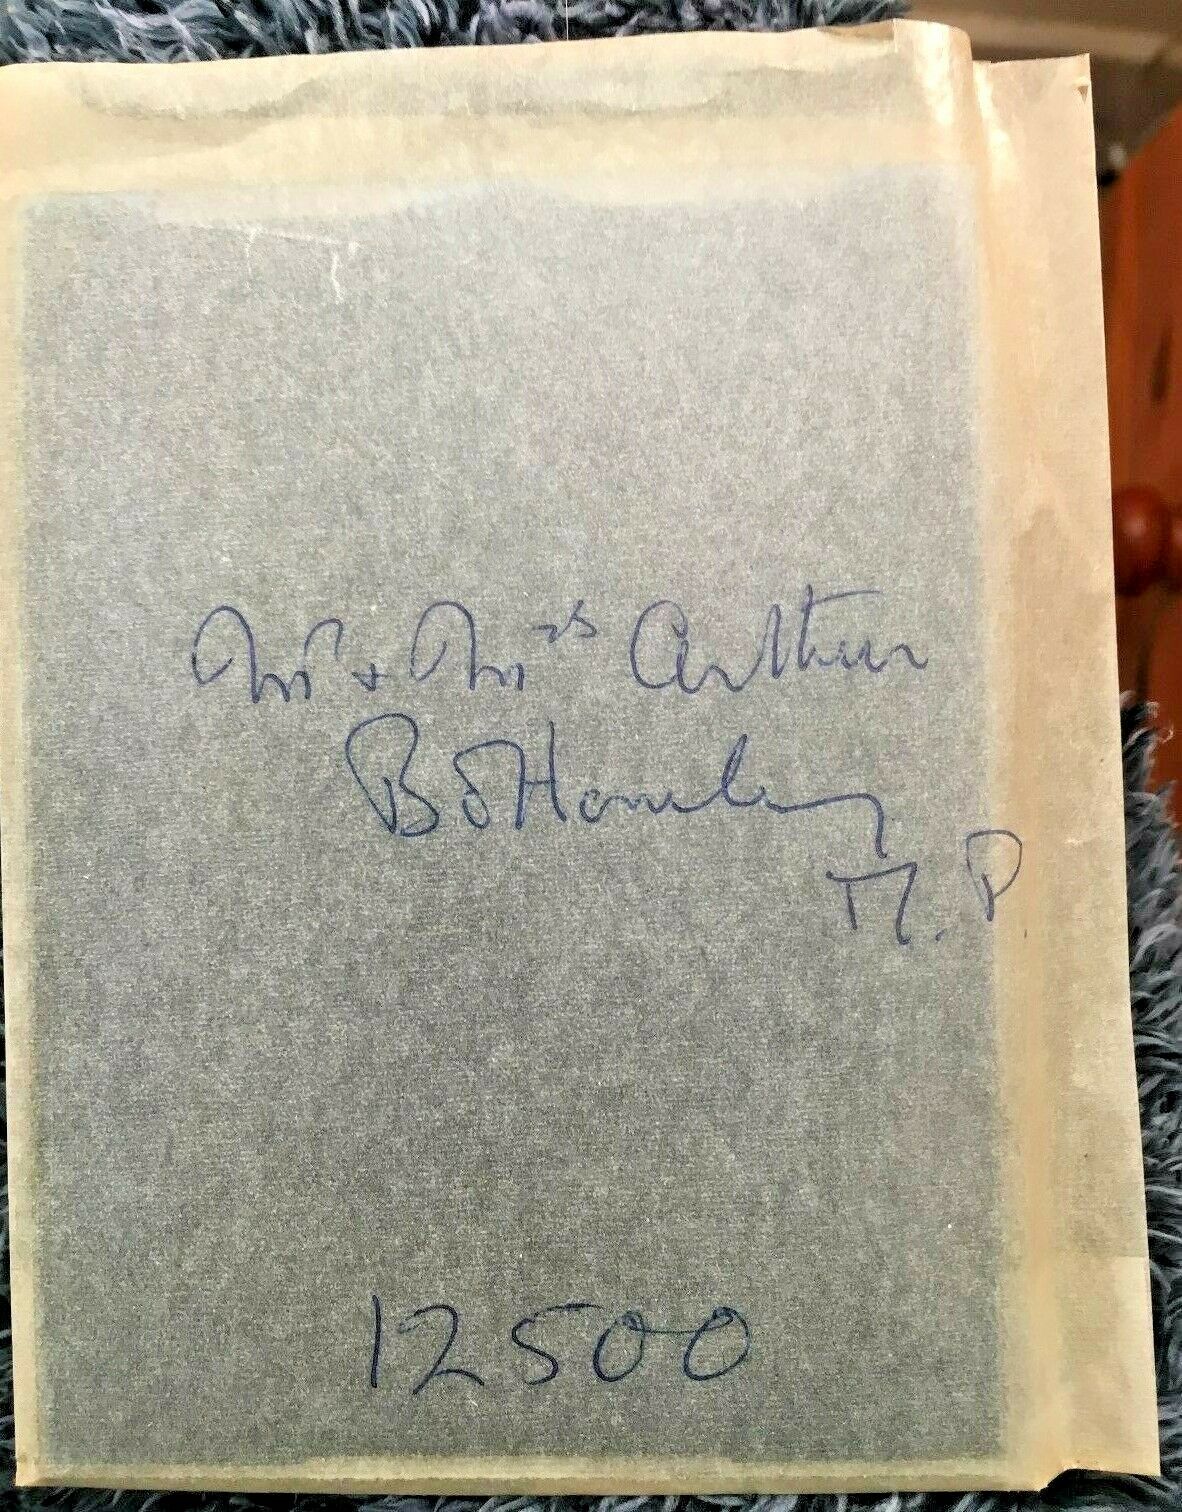 Mr + Mrs Arthur
B
M.P.
12500